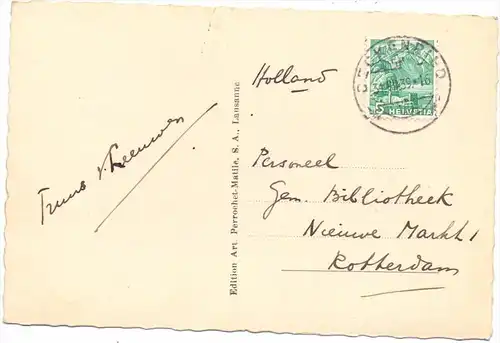 Truus v. Leeuwen
Edition Art. Perrochet-Matile, S. A., Lausanne
Holland
BECKENRIED
5 HELVETIA
Personeel
Gem. Bibliotheek
Nieuwe Markt 1
Rotterdam